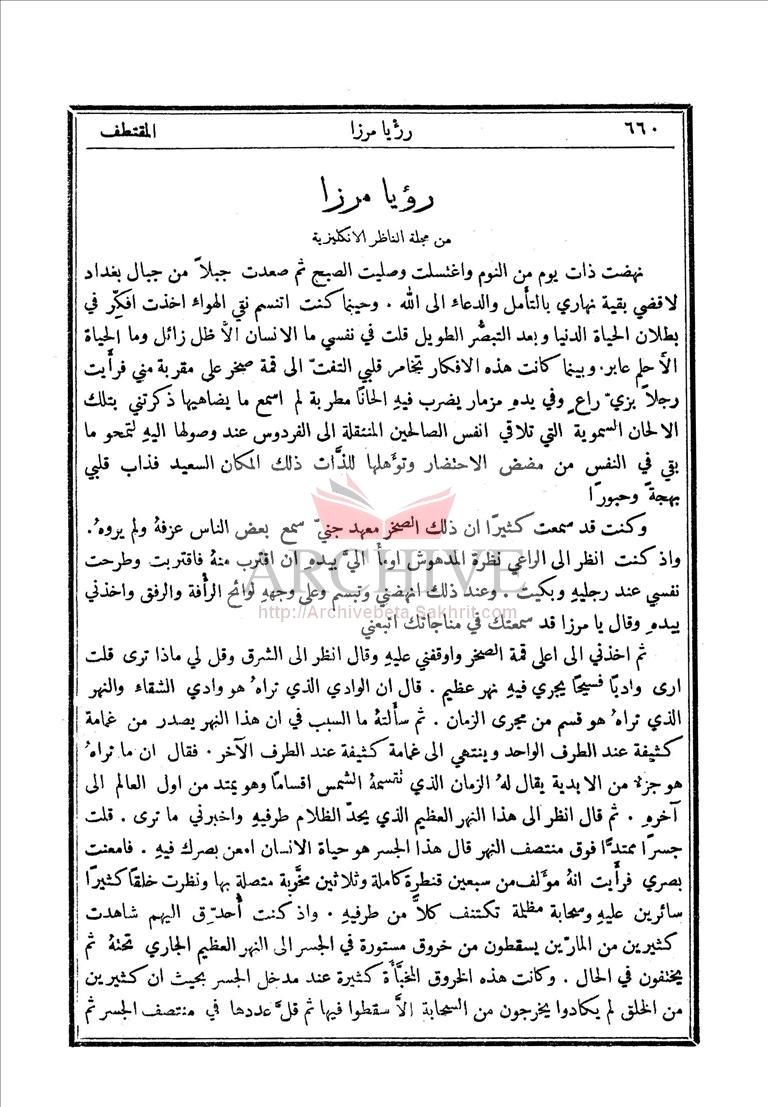 ٦٦٠ رؤيا مرزا المقتطف
رؤيا مرزا
من مجلة الناظر الانكليزية
نهضت ذات يوم من النوم واغتسلت وصليت الصبح ثم صعدت جبلاً من جبال بغداد
لاقضي بقية نهاري بالتأمل والدعاء الى الله . وحينما كنت اتنسم نقي الهواء اخذت افكّر في
بطلان الحياة الدنيا وبعد التبصُّر الطويل قلت في نفسي ما الانسان الاَّ ظل زائل وما الحياة
الاَّ حلم عابر. وبينما كانت هذه الافكار تخامر قلبي التفتّ الى قمة صخر على مقربة مني فرأيت
رجلاً بزيّ راعٍ وفي يدهِ مزمار يضرب فيهِ الحانًا مطربة لم اسمع ما يضاهيها ذكرتني بتلك
الالحان السموية التي تلاقي انفس الصالحين المنتقلة الى الفردوس عند وصولها اليهِ لتمحو ما
بقي في النفس من مضض الاحتضار وتؤهلها للذَّات ذلك المكان السعيد فذاب قلبي
بهجةً وحبورًا
وكنت قد سمعت كثيرًا ان ذلك الصخر معهد جنيّ سمع بعض الناس عزفهُ ولم يروهُ.
واذ كنت انظر الى الراعي نظرة المدهوش اومأ اليَّ بيدهِ ان اقترب منهُ فاقتربت وطرحت
نفسي عند رجليهِ وبكيت . وعند ذلك انهضني وتبسم وعلى وجههِ لوائح الرأفة والرفق واخذني
بيدهِ وقال يا مرزا قد سمعتك في مناجاتك اتبعني
ARCHIVE
http://Archivebeta.Sakhrit.com
ثم اخذني الى اعلى قمة الصخر واوقفني عليهِ وقال انظر الى الشرق وقل لي ماذا ترى قلت
ارى واديًا فسيحًا يجري فيهِ نهر عظيم . قال ان الوادي الذي تراهُ هو وادي الشقاء والنهر
الذي تراهُ هو قسم من مجرى الزمان . ثم سألتهُ ما السبب في ان هذا النهر يصدر من غمامة
كثيفة عند الطرف الواحد وينتهي الى غمامة كثيفة عند الطرف الآخر . فقال ان ما تراهُ
هو جزء من الابدية يقال لهُ الزمان الذي تقسمهُ الشمس اقسامًا وهو يمتد من اول العالم الى
آخرهِ . ثم قال انظر الى هذا النهر العظيم الذي يحدّ الظلام طرفيهِ واخبرني ما ترى . قلت
جسرًا ممتدًّا فوق منتصف النهر قال هذا الجسر هو حياة الانسان امعن بصرك فيهِ . فامعنت
بصري فرأيت انهُ مؤلف من سبعين قنطرة كاملة وثلاثين مخرَّبة متصلة بها ونظرت خلقًا كثيرًا
سائرين عليهِ وسحابة مظلمة تكتنف كلاًّ من طرفيهِ . واذ كنت أُحدّق اليهم شاهدت
كثيرين من المارّين يسقطون من خروق مستورة في الجسر الى النهر العظيم الجاري تحتهُ ثم
يختفون في الحال . وكانت هذه الخروق المخبَّأَة كثيرة عند مدخل الجسر بحيث ان كثيرين
من الخلق لم يكادوا يخرجون من السحابة الاَّ سقطوا فيها ثم قلَّ عددها في منتصف الجسر ثم